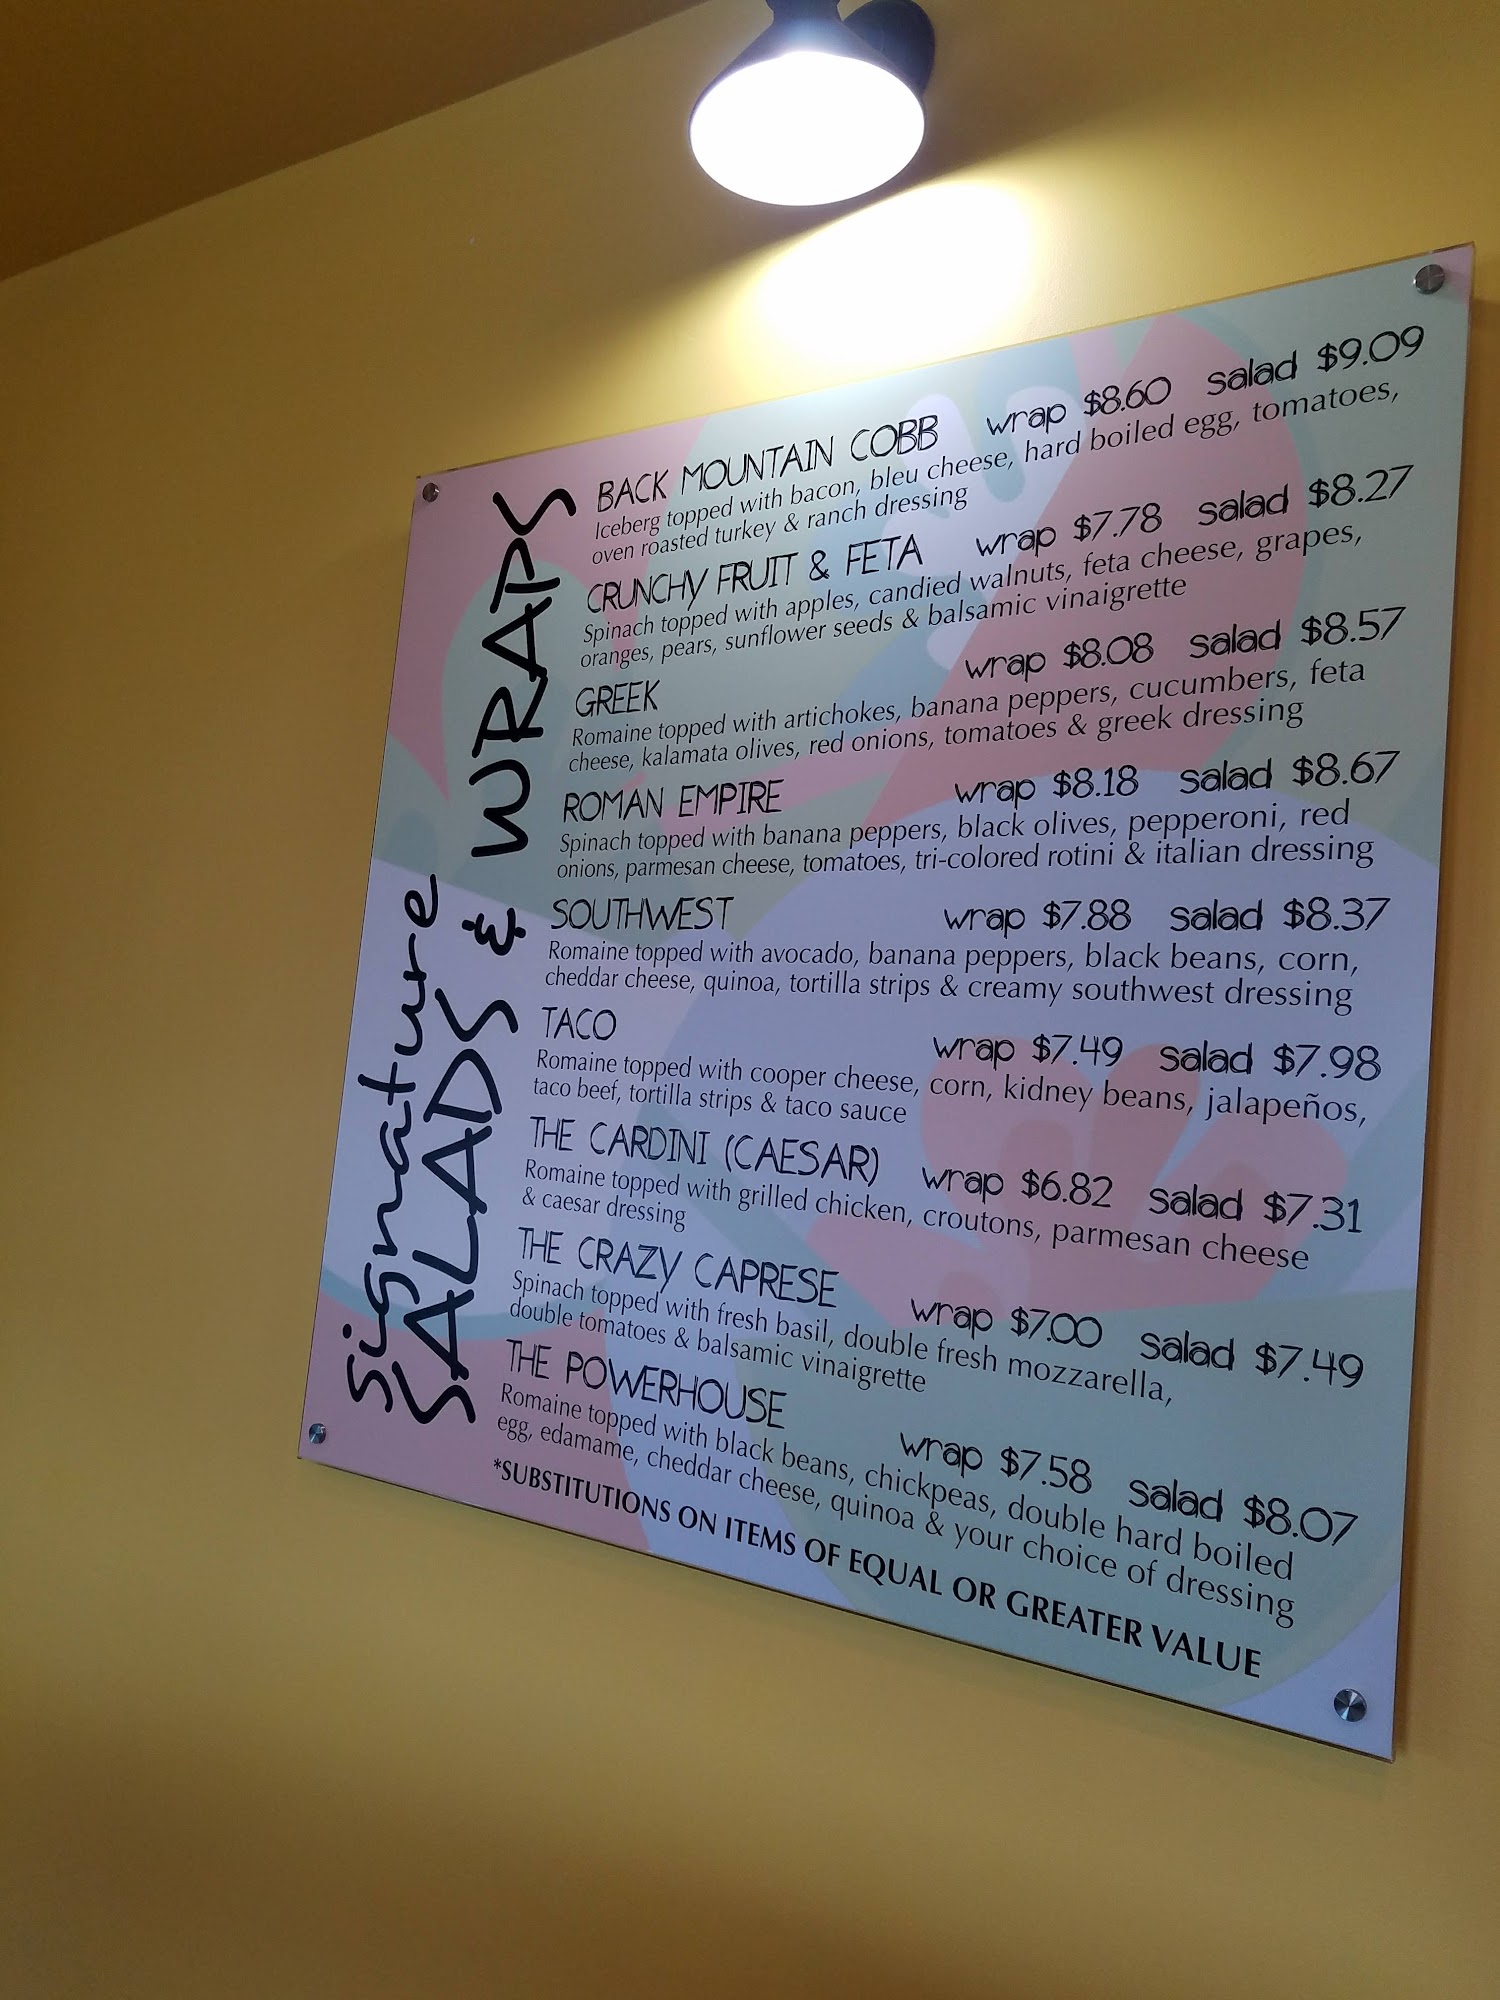 signature
SALADS & WRAPS
BACK MOUNTAIN COBB wrap $8.60 salad $9.09
Iceberg topped with bacon, bleu cheese, hard boiled egg, tomatoes,
oven roasted turkey & ranch dressing
CRUNCHY FRUIT & FETA wrap $7.78 salad $8.27
Spinach topped with apples, candied walnuts, feta cheese, grapes,
oranges, pears, sunflower seeds & balsamic vinaigrette
GREEK wrap $8.08 salad $8.57
Romaine topped with artichokes, banana peppers, cucumbers, feta
cheese, kalamata olives, red onions, tomatoes & greek dressing
ROMAN EMPIRE wrap $8.18 salad $8.67
Spinach topped with banana peppers, black olives, pepperoni, red
onions, parmesan cheese, tomatoes, tri-colored rotini & italian dressing
SOUTHWEST wrap $7.88 salad $8.37
Romaine topped with avocado, banana peppers, black beans, corn,
cheddar cheese, quinoa, tortilla strips & creamy southwest dressing
TACO wrap $7.49 salad $7.98
Romaine topped with cooper cheese, corn, kidney beans, jalapeños,
taco beef, tortilla strips & taco sauce
THE CARDINI (CAESAR) wrap $6.82 salad $7.31
Romaine topped with grilled chicken, croutons, parmesan cheese
& caesar dressing
THE CRAZY CAPRESE wrap $7.00 salad $7.49
Spinach topped with fresh basil, double fresh mozzarella,
double tomatoes & balsamic vinaigrette
THE POWERHOUSE wrap $7.58 salad $8.07
Romaine topped with black beans, chickpeas, double hard boiled
egg, edamame, cheddar cheese, quinoa & your choice of dressing
*SUBSTITUTIONS ON ITEMS OF EQUAL OR GREATER VALUE